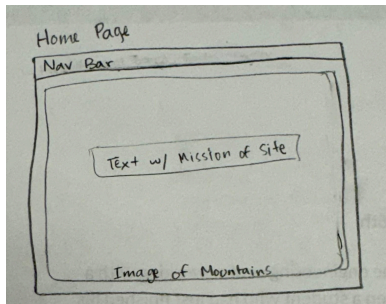 Home Page
Nav Bar
Text w/ Mission of Site
Image of Mountains